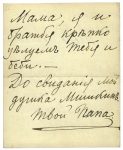 Мама, я и
братья крѣпко
цѣлуемъ тебя и
беби. —
До свиданія моя
душка Мишкинъ
твой Папа